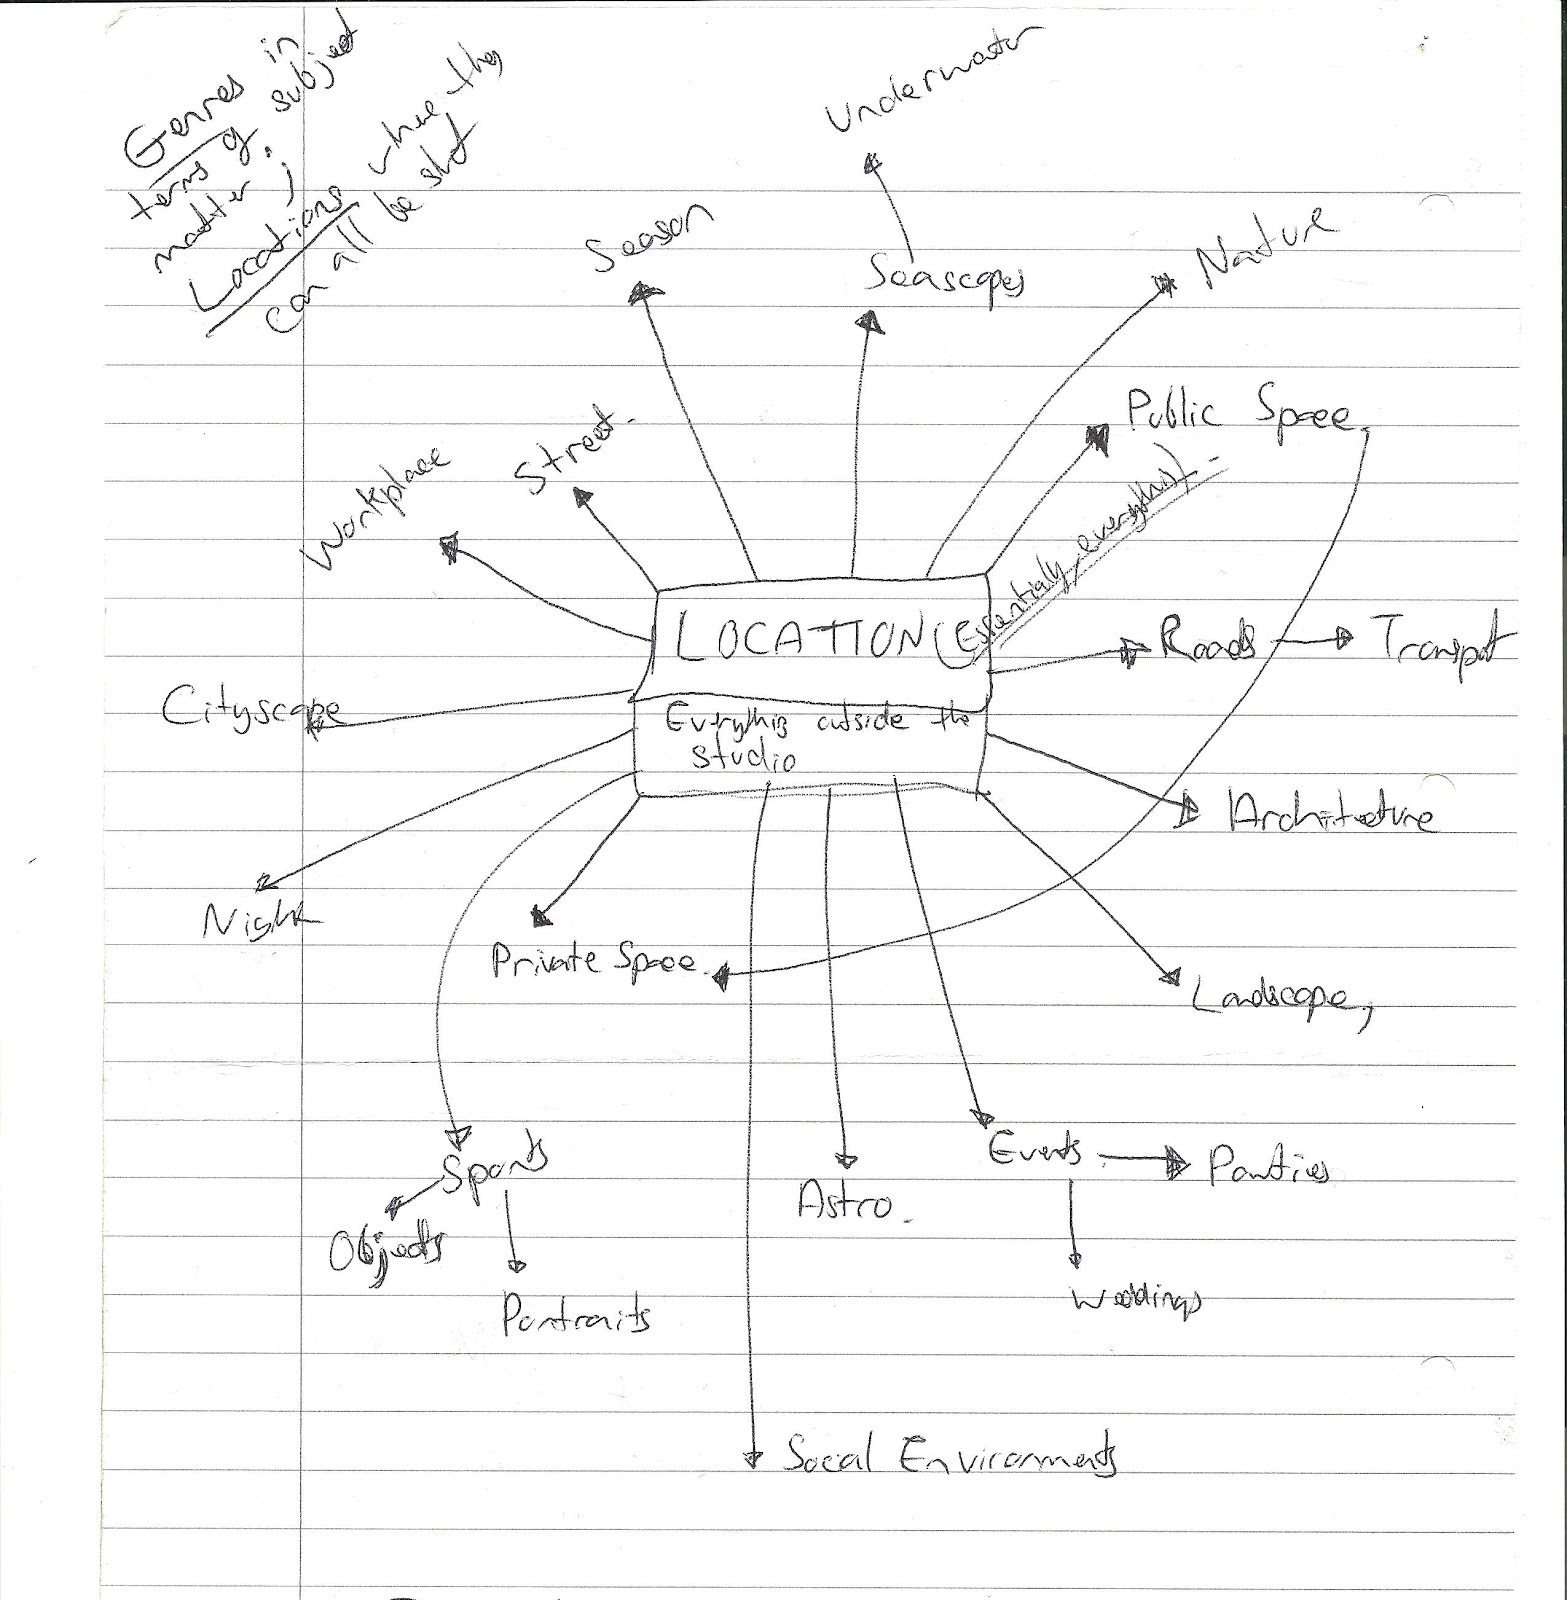 Genres in
terms of subject
matter;
Locations where they
can all be shot
Underwater
Season
Seascapes
Nature
Public Space
Street.
Workplace
LOCATION (Essentially everything).
Roads
Transport
Cityscape
Everything outside the
studio
Architecture
Night
Private Space
Landscape,
Sports
Events
Parties
Astro.
Objects
Portraits
Weddings
Social Environments